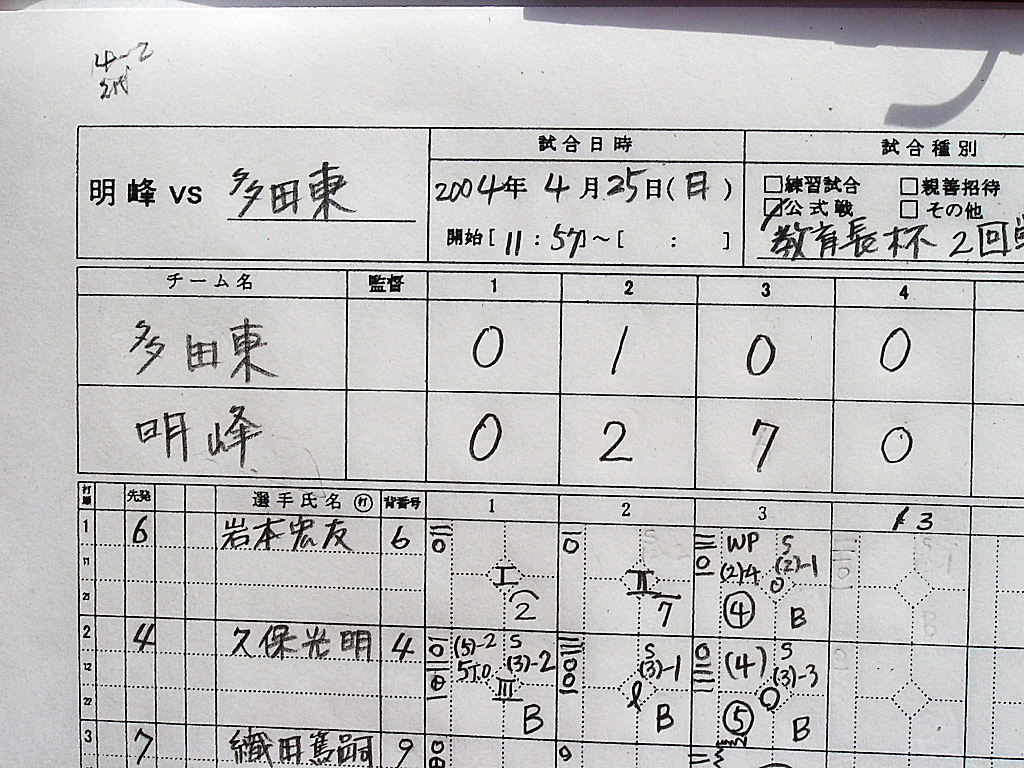 4-2
明峰 VS 多田東
試合日時
2004年 4月25日(日)
開始[ 11:57]~[ : ]
試合種別
□練習試合 □親善招待
☑公式戦 □その他
教育長杯 2回戦
チーム名 監督 1 2 3 4
多田東 0 1 0 0
明峰 0 2 7 0
打順 先発 選手氏名 打 背番号 1 2 3
1 6 岩本宏友 6
11
21
I 2
II 7
WP S
(2)4 (2)-1
④ B
2 4 久保光明 4
12
22
(5)-2 S
(3)-2
III B
S
(3)-1
B
(4) S
(3)-3
⑤ B
3 7 織田篤嗣 9